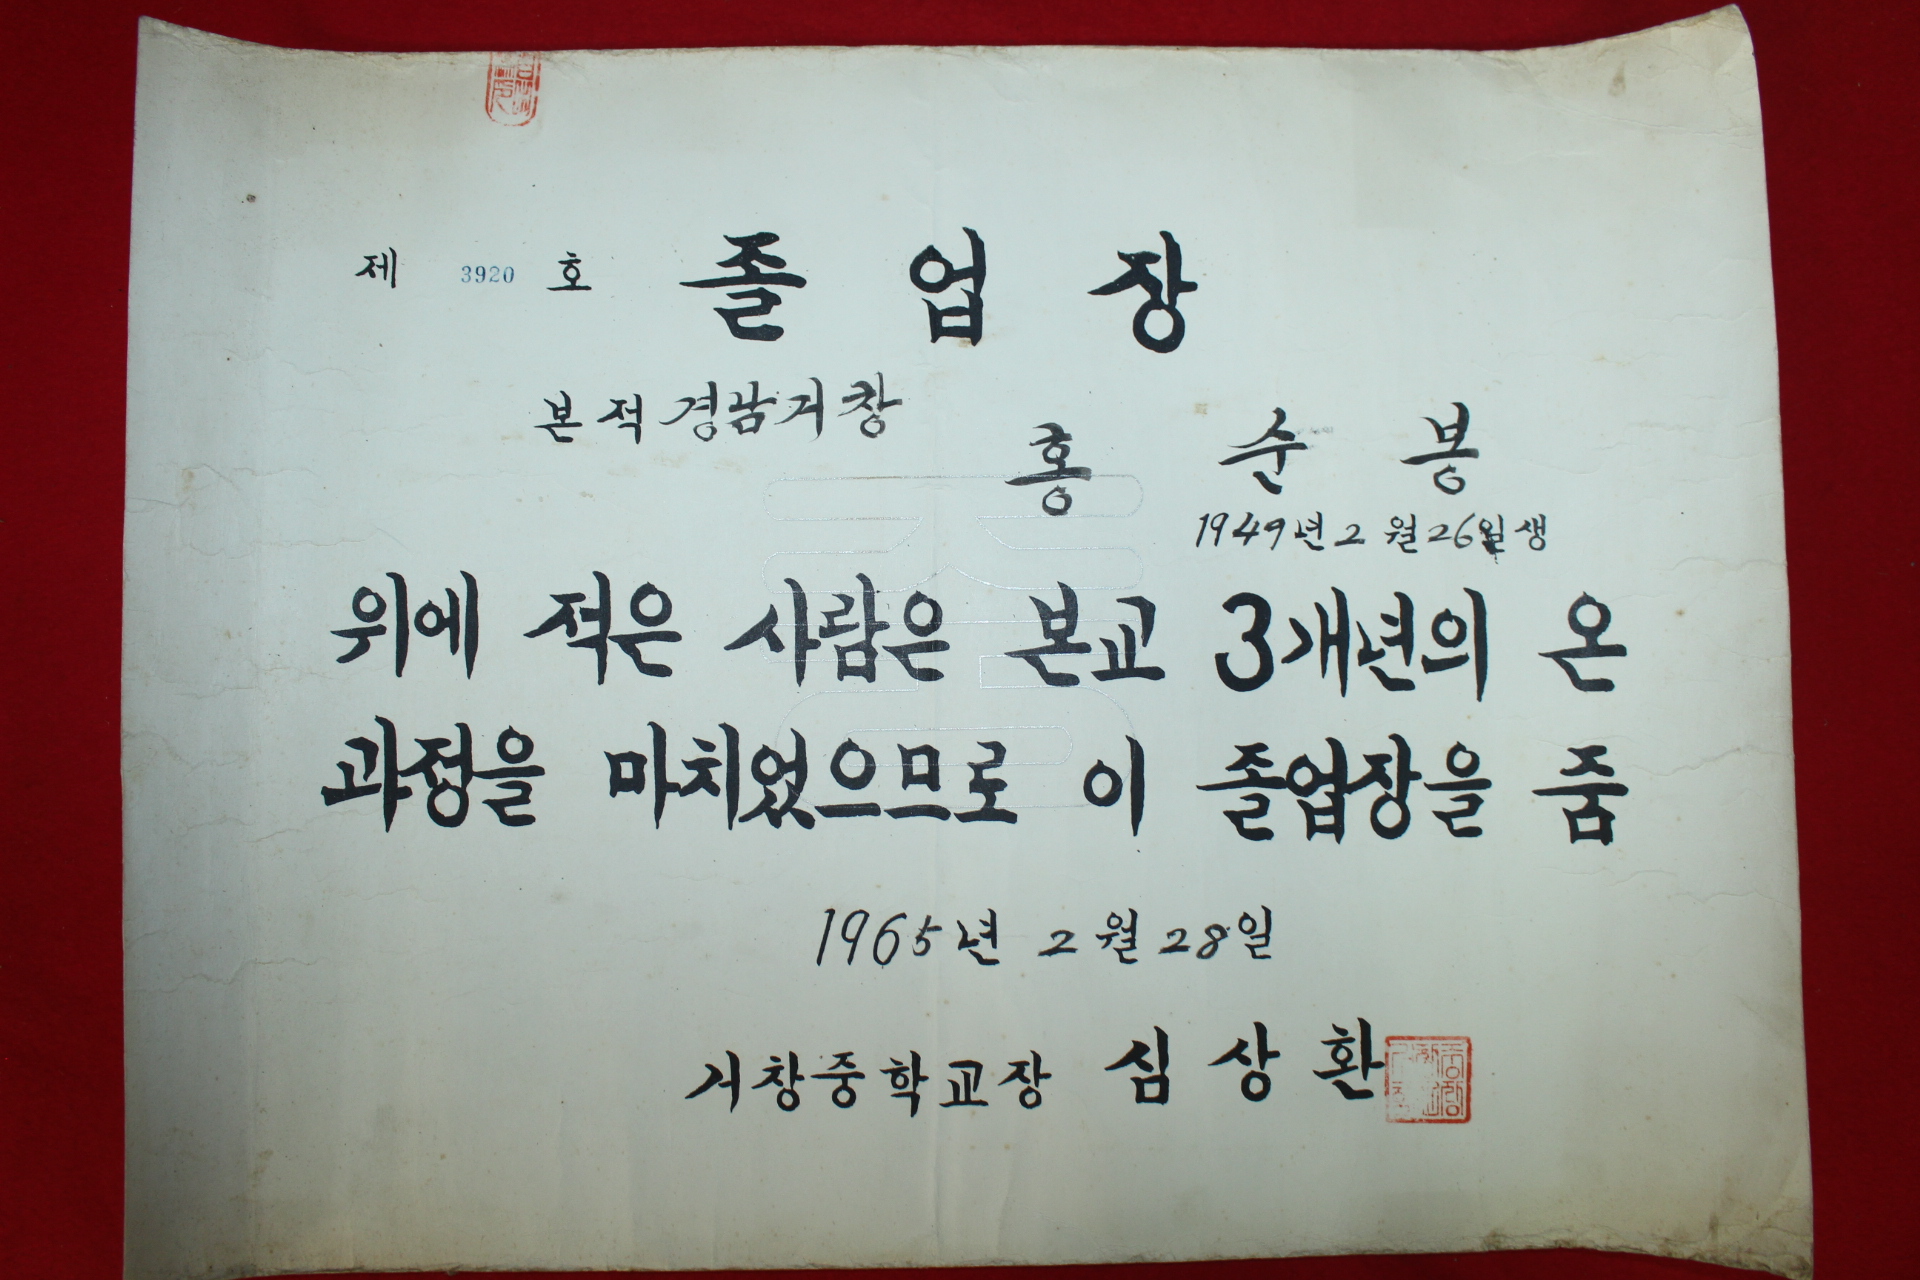 제 3920 호 졸 업 장
본적 경남거창
홍 순 봉
1949년 2월 26일생
위에 적은 사람은 본교 3개년의 온
과정을 마치었으므로 이 졸업장을 줌
1965년 2월 28일
거창중학교장 심상환